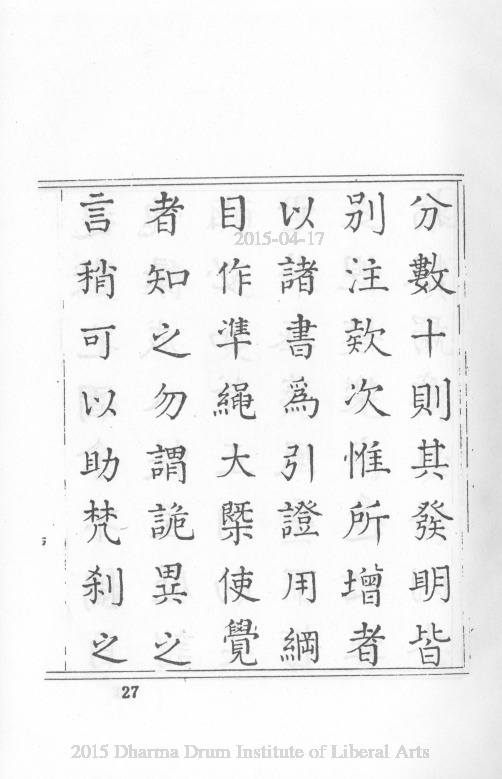 分數十則其發明皆
別注欵次惟所增者
以諸書爲引證用綱
目作準繩大槩使覺
者知之勿謂詭異之
言稍可以助梵刹之
27
2015-04-17
2015 Dharma Drum Institute of Liberal Arts